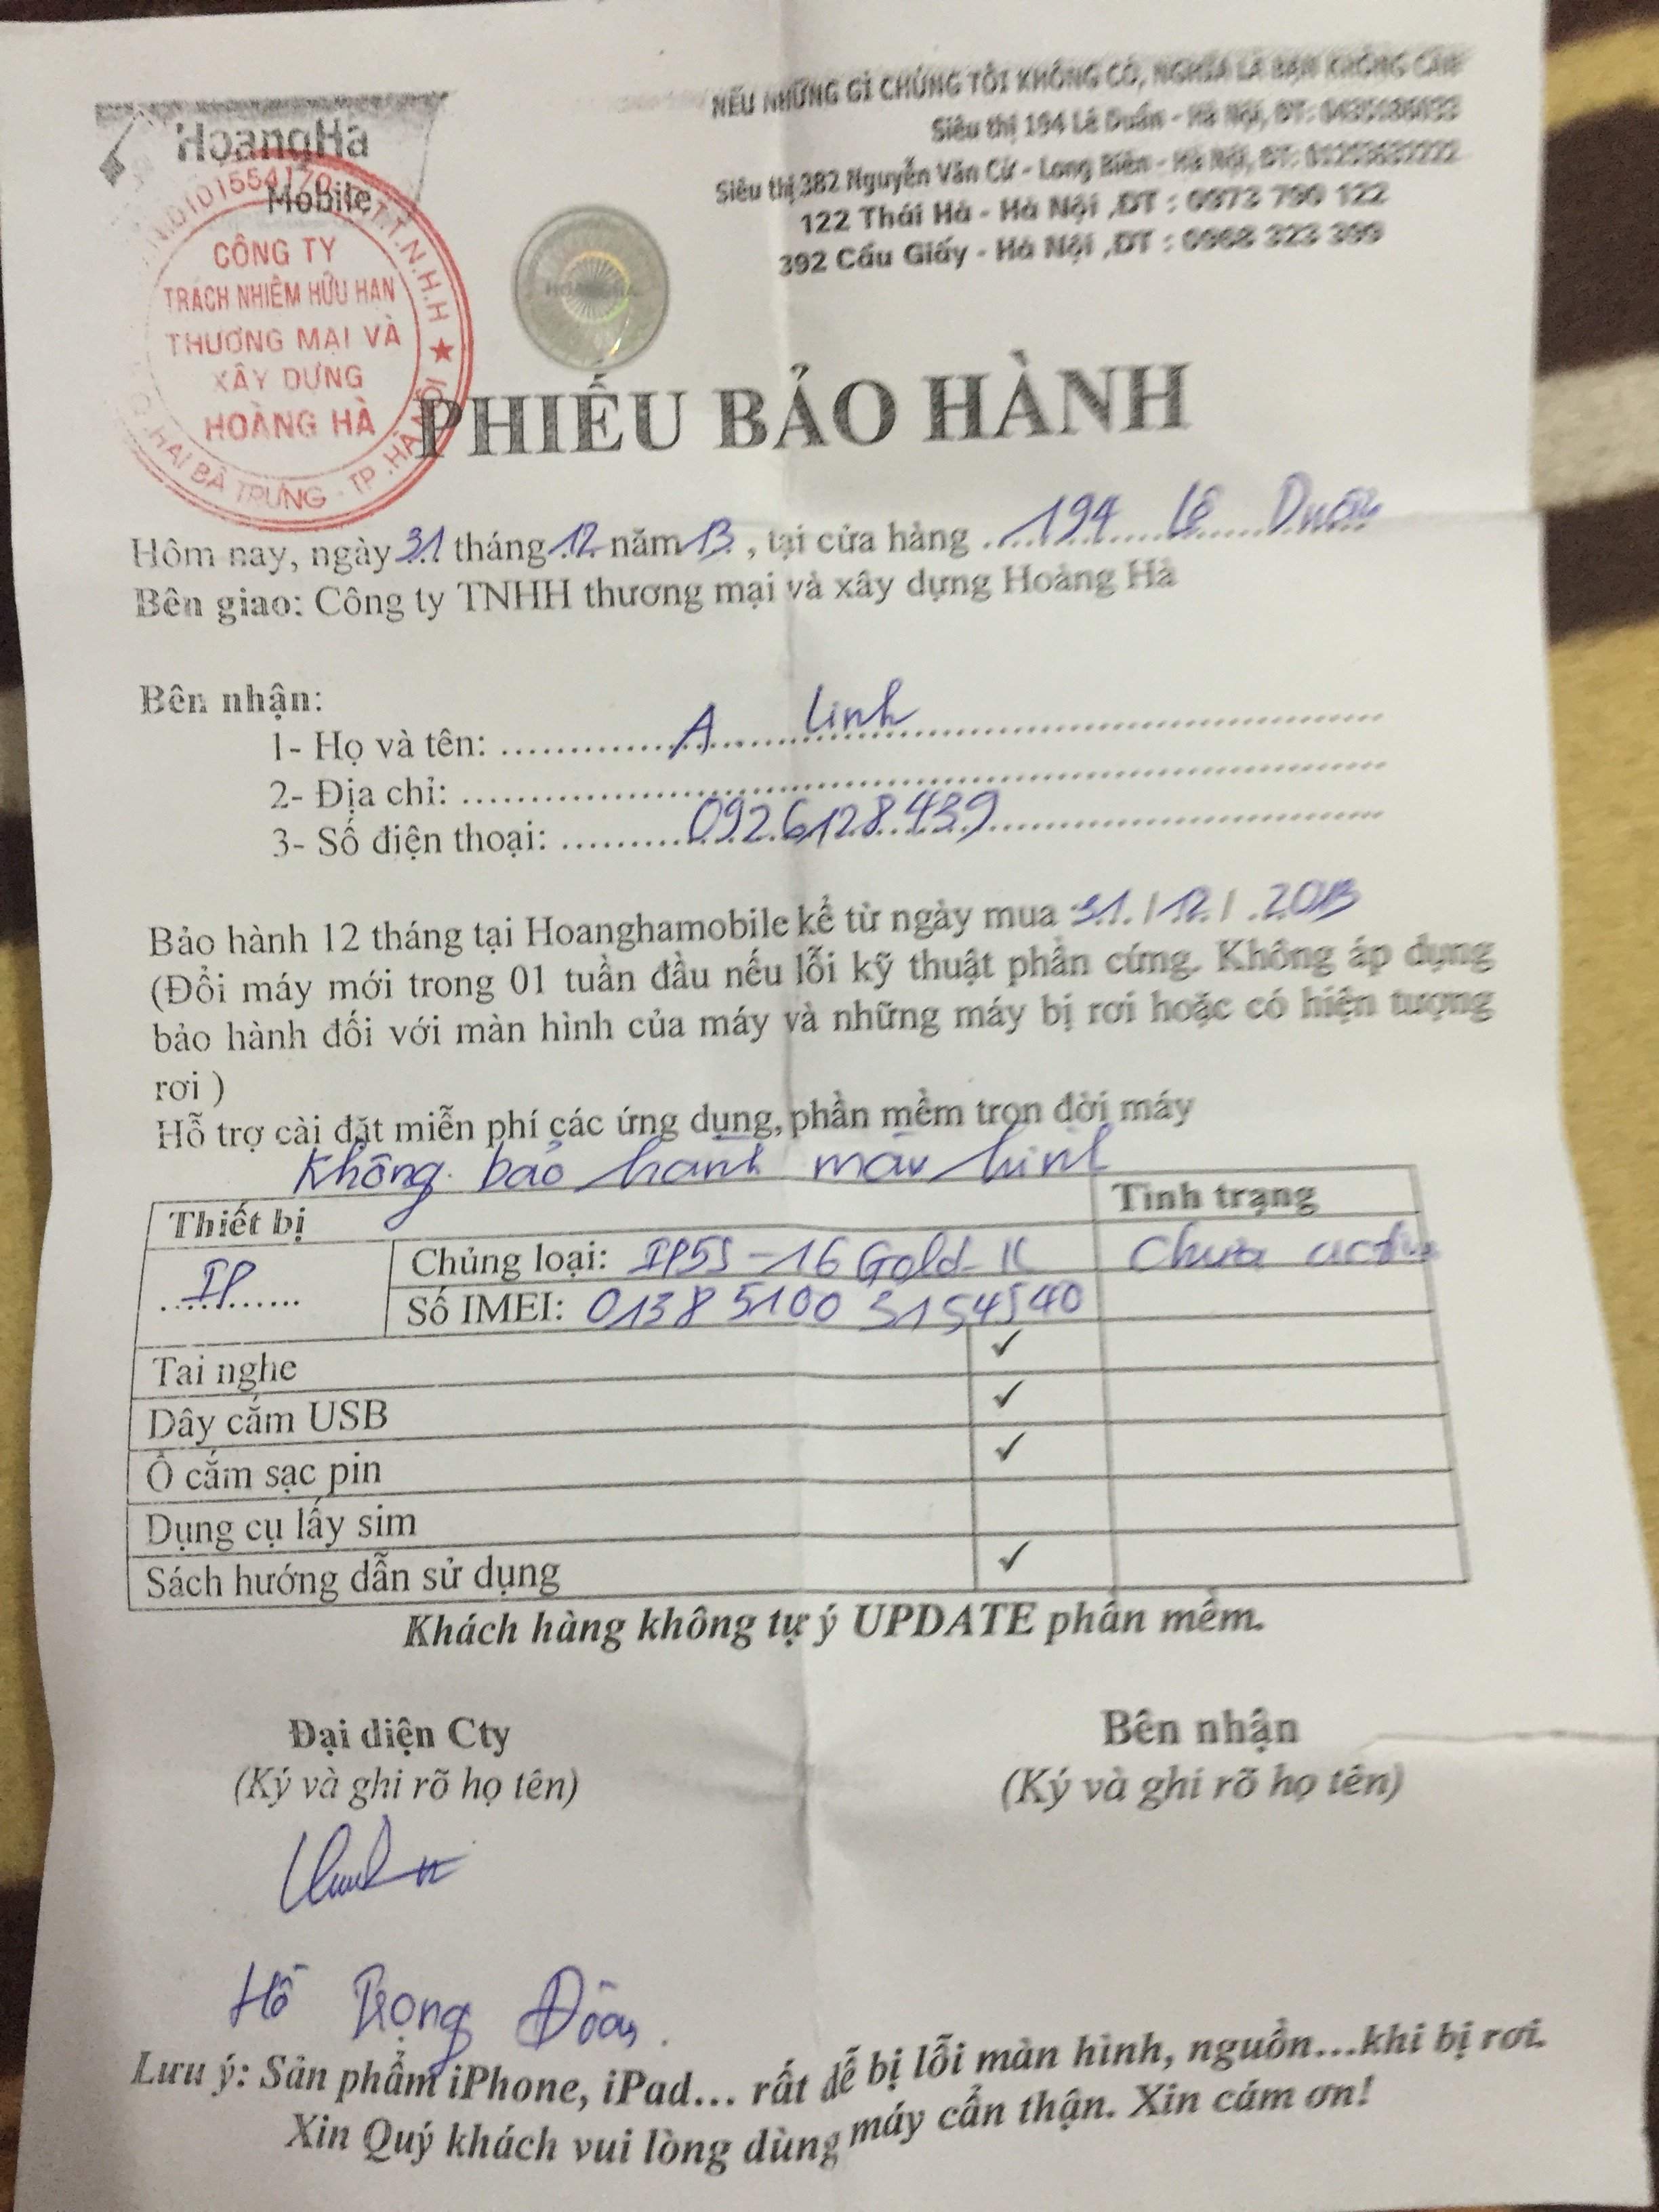 HoangHa
Mobile
NẾU NHỮNG GÌ CHÚNG TÔI KHÔNG CÓ, NGHĨA LÀ BẠN KHÔNG CẦN
Siêu thị 194 Lê Duẩn - Hà Nội, ĐT:
Siêu thị 382 Nguyễn Văn Cừ - Long Biên - Hà Nội, ĐT:
122 Thái Hà - Hà Nội ,ĐT : 0973 790 122
392 Cầu Giấy - Hà Nội ,ĐT : 0968 323 399
CÔNG TY
TRÁCH NHIỆM HỮU HẠN
THƯƠNG MẠI VÀ
XÂY DỰNG
HOÀNG HÀ
HAI BÀ TRƯNG - TP. HÀ NỘI
HOANGHA
PHIẾU BẢO HÀNH
Hôm nay, ngày 31 tháng 12 năm 13 , tại cửa hàng 194 Lê Duẩn
Bên giao: Công ty TNHH thương mại và xây dựng Hoàng Hà
Bên nhận:
1- Họ và tên: A Linh
2- Địa chỉ:
3- Số điện thoại: 0926128439
Bảo hành 12 tháng tại Hoanghamobile kể từ ngày mua 31/12/2013
(Đổi máy mới trong 01 tuần đầu nếu lỗi kỹ thuật phần cứng. Không áp dụng
bảo hành đối với màn hình của máy và những máy bị rơi hoặc có hiện tượng
rơi )
Hỗ trợ cài đặt miễn phí các ứng dụng, phần mềm trọn đời máy
Không bảo hành màn hình
Thiết bị Tình trạng
IP Chủng loại: IP5S - 16 Gold Chưa active
Số IMEI: 0138 5100 3154540
Tai nghe ✓
Dây cắm USB ✓
Ổ cắm sạc pin ✓
Dụng cụ lấy sim
Sách hướng dẫn sử dụng ✓
Khách hàng không tự ý UPDATE phần mềm.
Đại diện Cty Bên nhận
(Ký và ghi rõ họ tên) (Ký và ghi rõ họ tên)
Hồ Trọng Đoàn
Lưu ý: Sản phẩm iPhone, iPad... rất dễ bị lỗi màn hình, nguồn...khi bị rơi.
Xin Quý khách vui lòng dùng máy cẩn thận. Xin cám ơn!